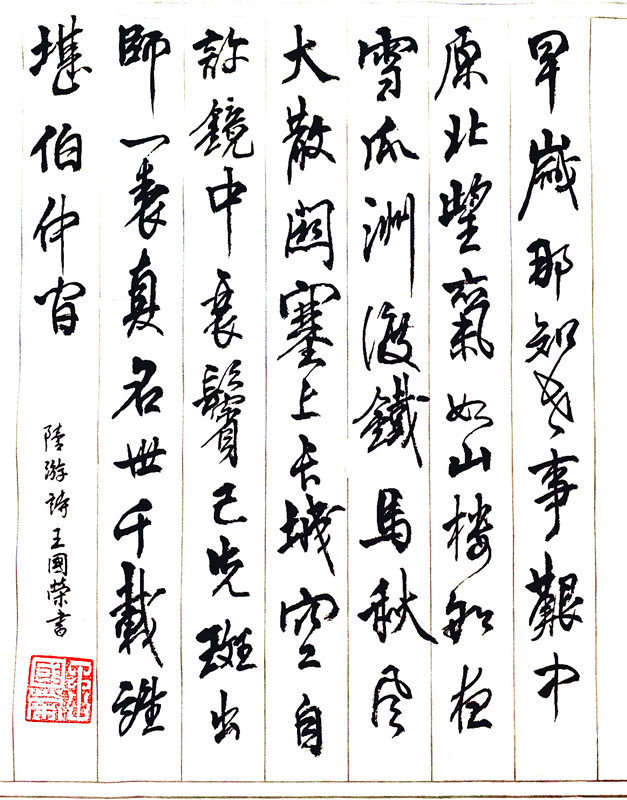 早歲那知世事艱中
原北望氣如山樓船夜
雪瓜洲渡鐵馬秋風
大散關塞上長城空自
許鏡中衰鬢已先斑出
師一表真名世千載誰
堪伯仲間
陸游詩王國榮書